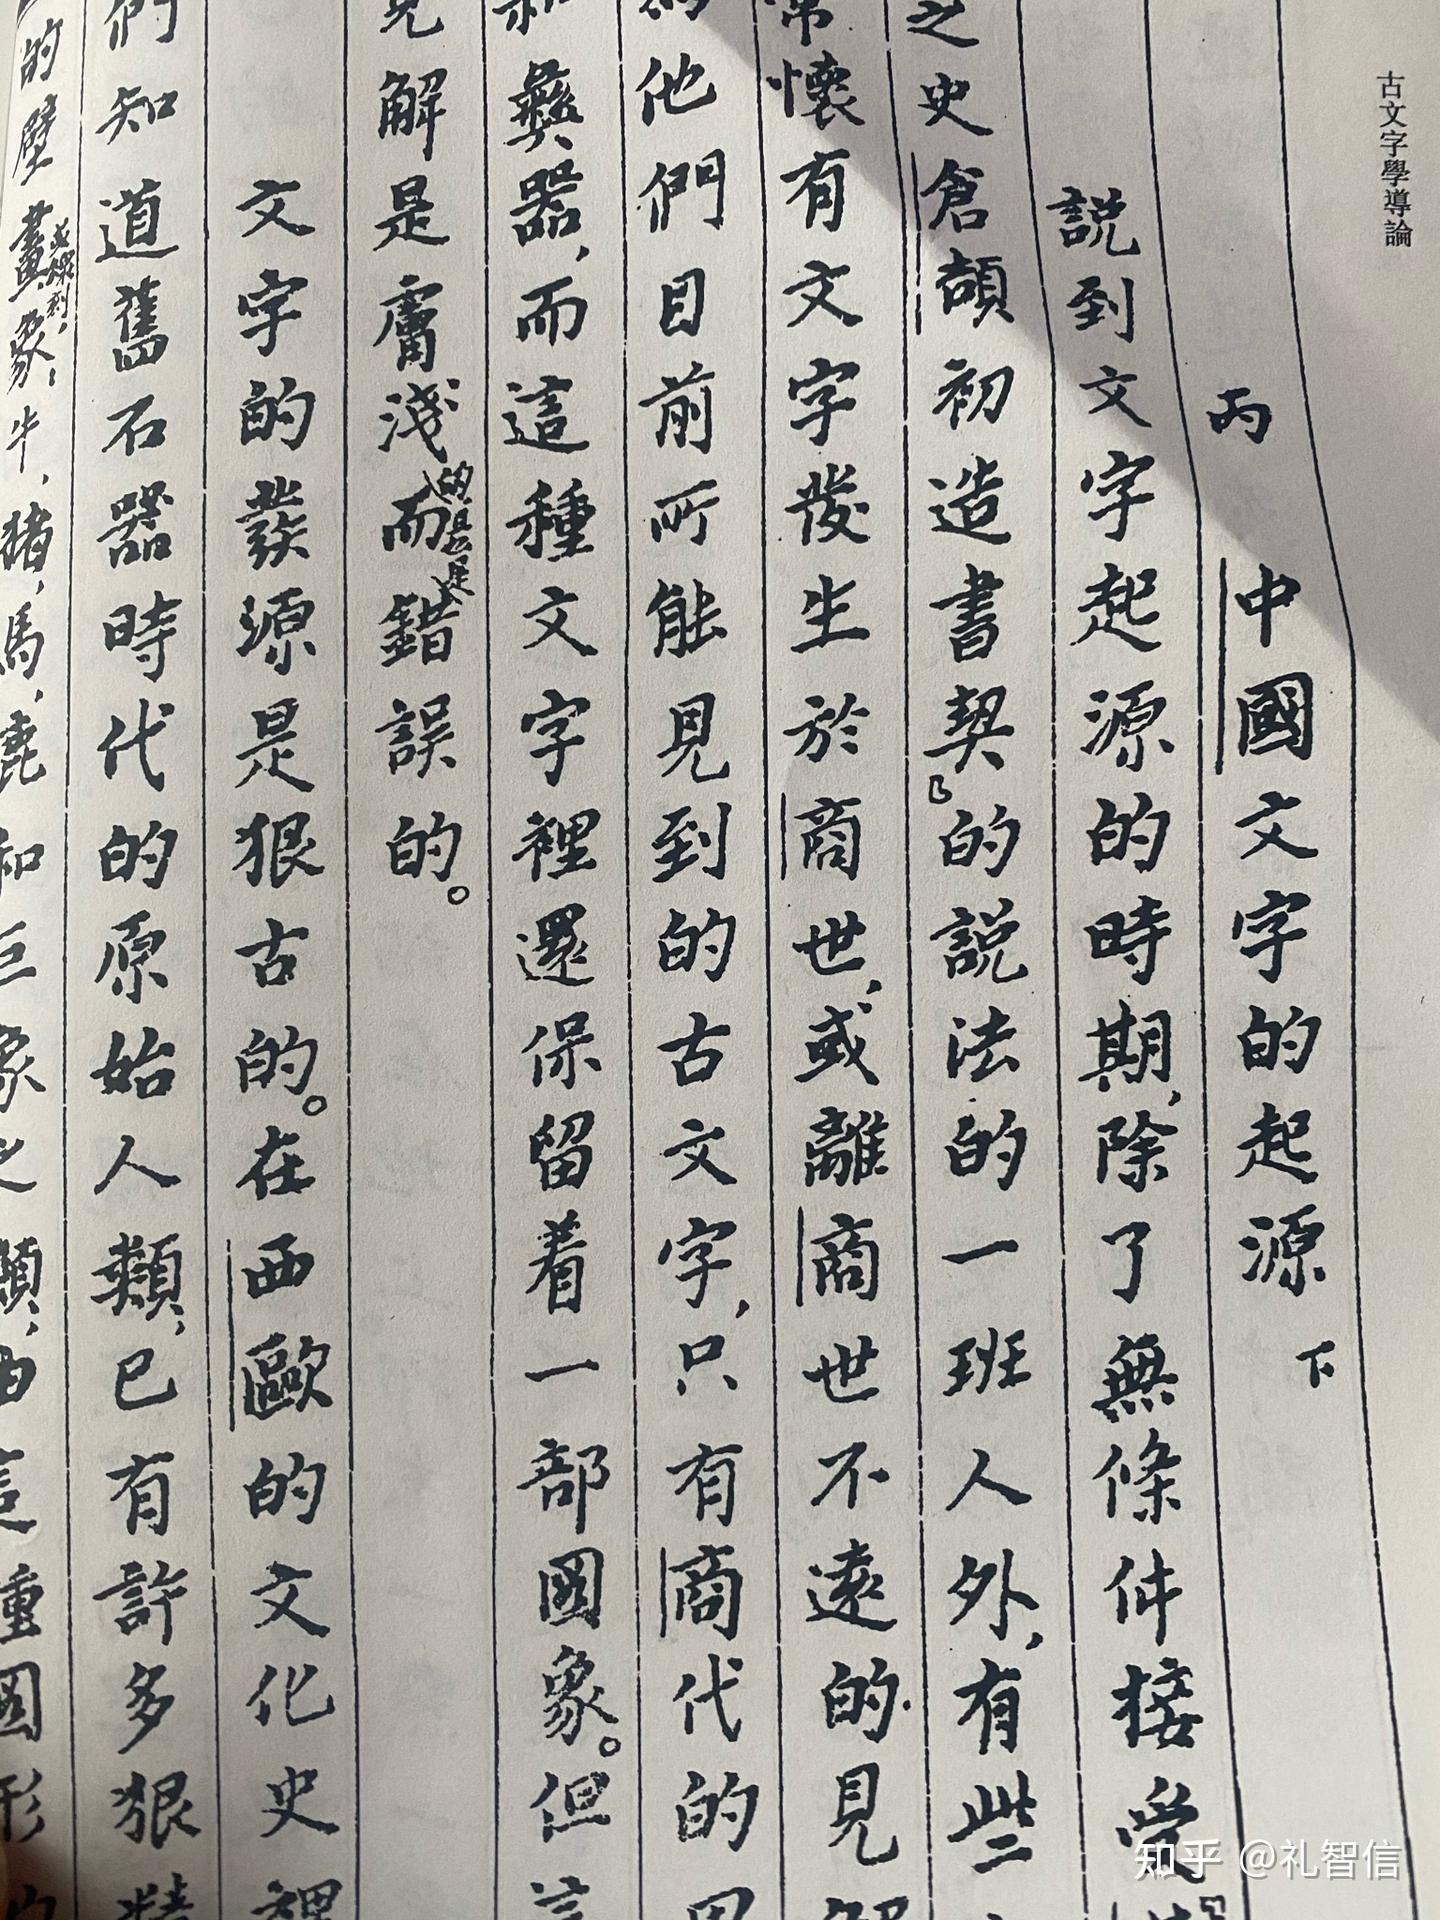 古文字學導論
丙 中國文字的起源 下
說到文字起源的時期，除了無條件接受
之史倉頡初造書契』的說法的一班人外，有些
常懷有文字發生於商世，或離商世不遠的見解
他們目前所能見到的古文字，只有商代的
彝器，而這種文字裡還保留着一部圖象。但這
見解是膚淺的，且是而錯誤的。
文字的發源是狠古的。在西歐的文化史裡
們知道舊石器時代的原始人類，已有許多狠精
的壁畫或雕刻，象：牛，豬，馬，鹿和巨象之類，由這種圖形
知乎 @礼智信